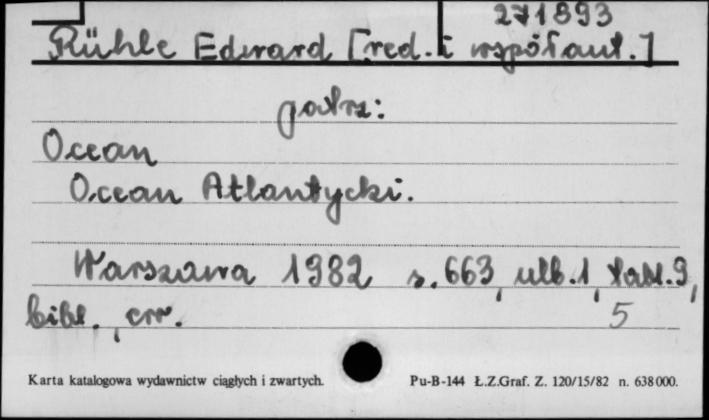 271893
Rühle Edward [red. i współaut.]
patrz:
Ocean
Ocean Atlantycki.
Warszawa 1982 s. 663, ulb. 1, tabl. 9,
bibl., err.
5
Karta katalogowa wydawnictw ciągłych i zwartych. Pu-B-144 Ł.Z.Graf. Z. 120/15/82 n. 638 000.